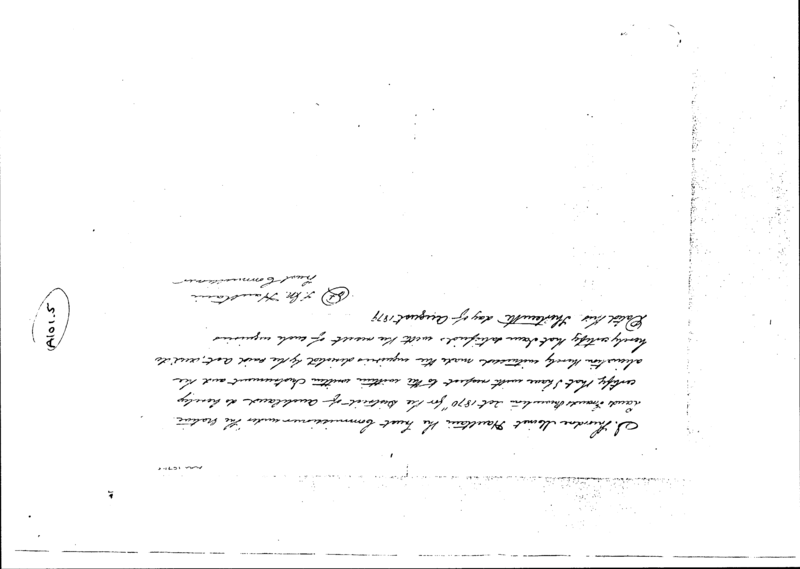 I, Theodore Minet Haultain the Trust Commissioner under "The Native
Lands Frauds Prevention Act 1870" for the District of Auckland do hereby
certify that I have with respect to the within written Instrument and the
alienation thereby witnessed made the inquiries directed by the said Act, and do
hereby certify that I am satisfied with the result of such inquiries
Dated this Thirteenth day of August 1877
T. M. Haultain
Trust Commissioner
A101.5